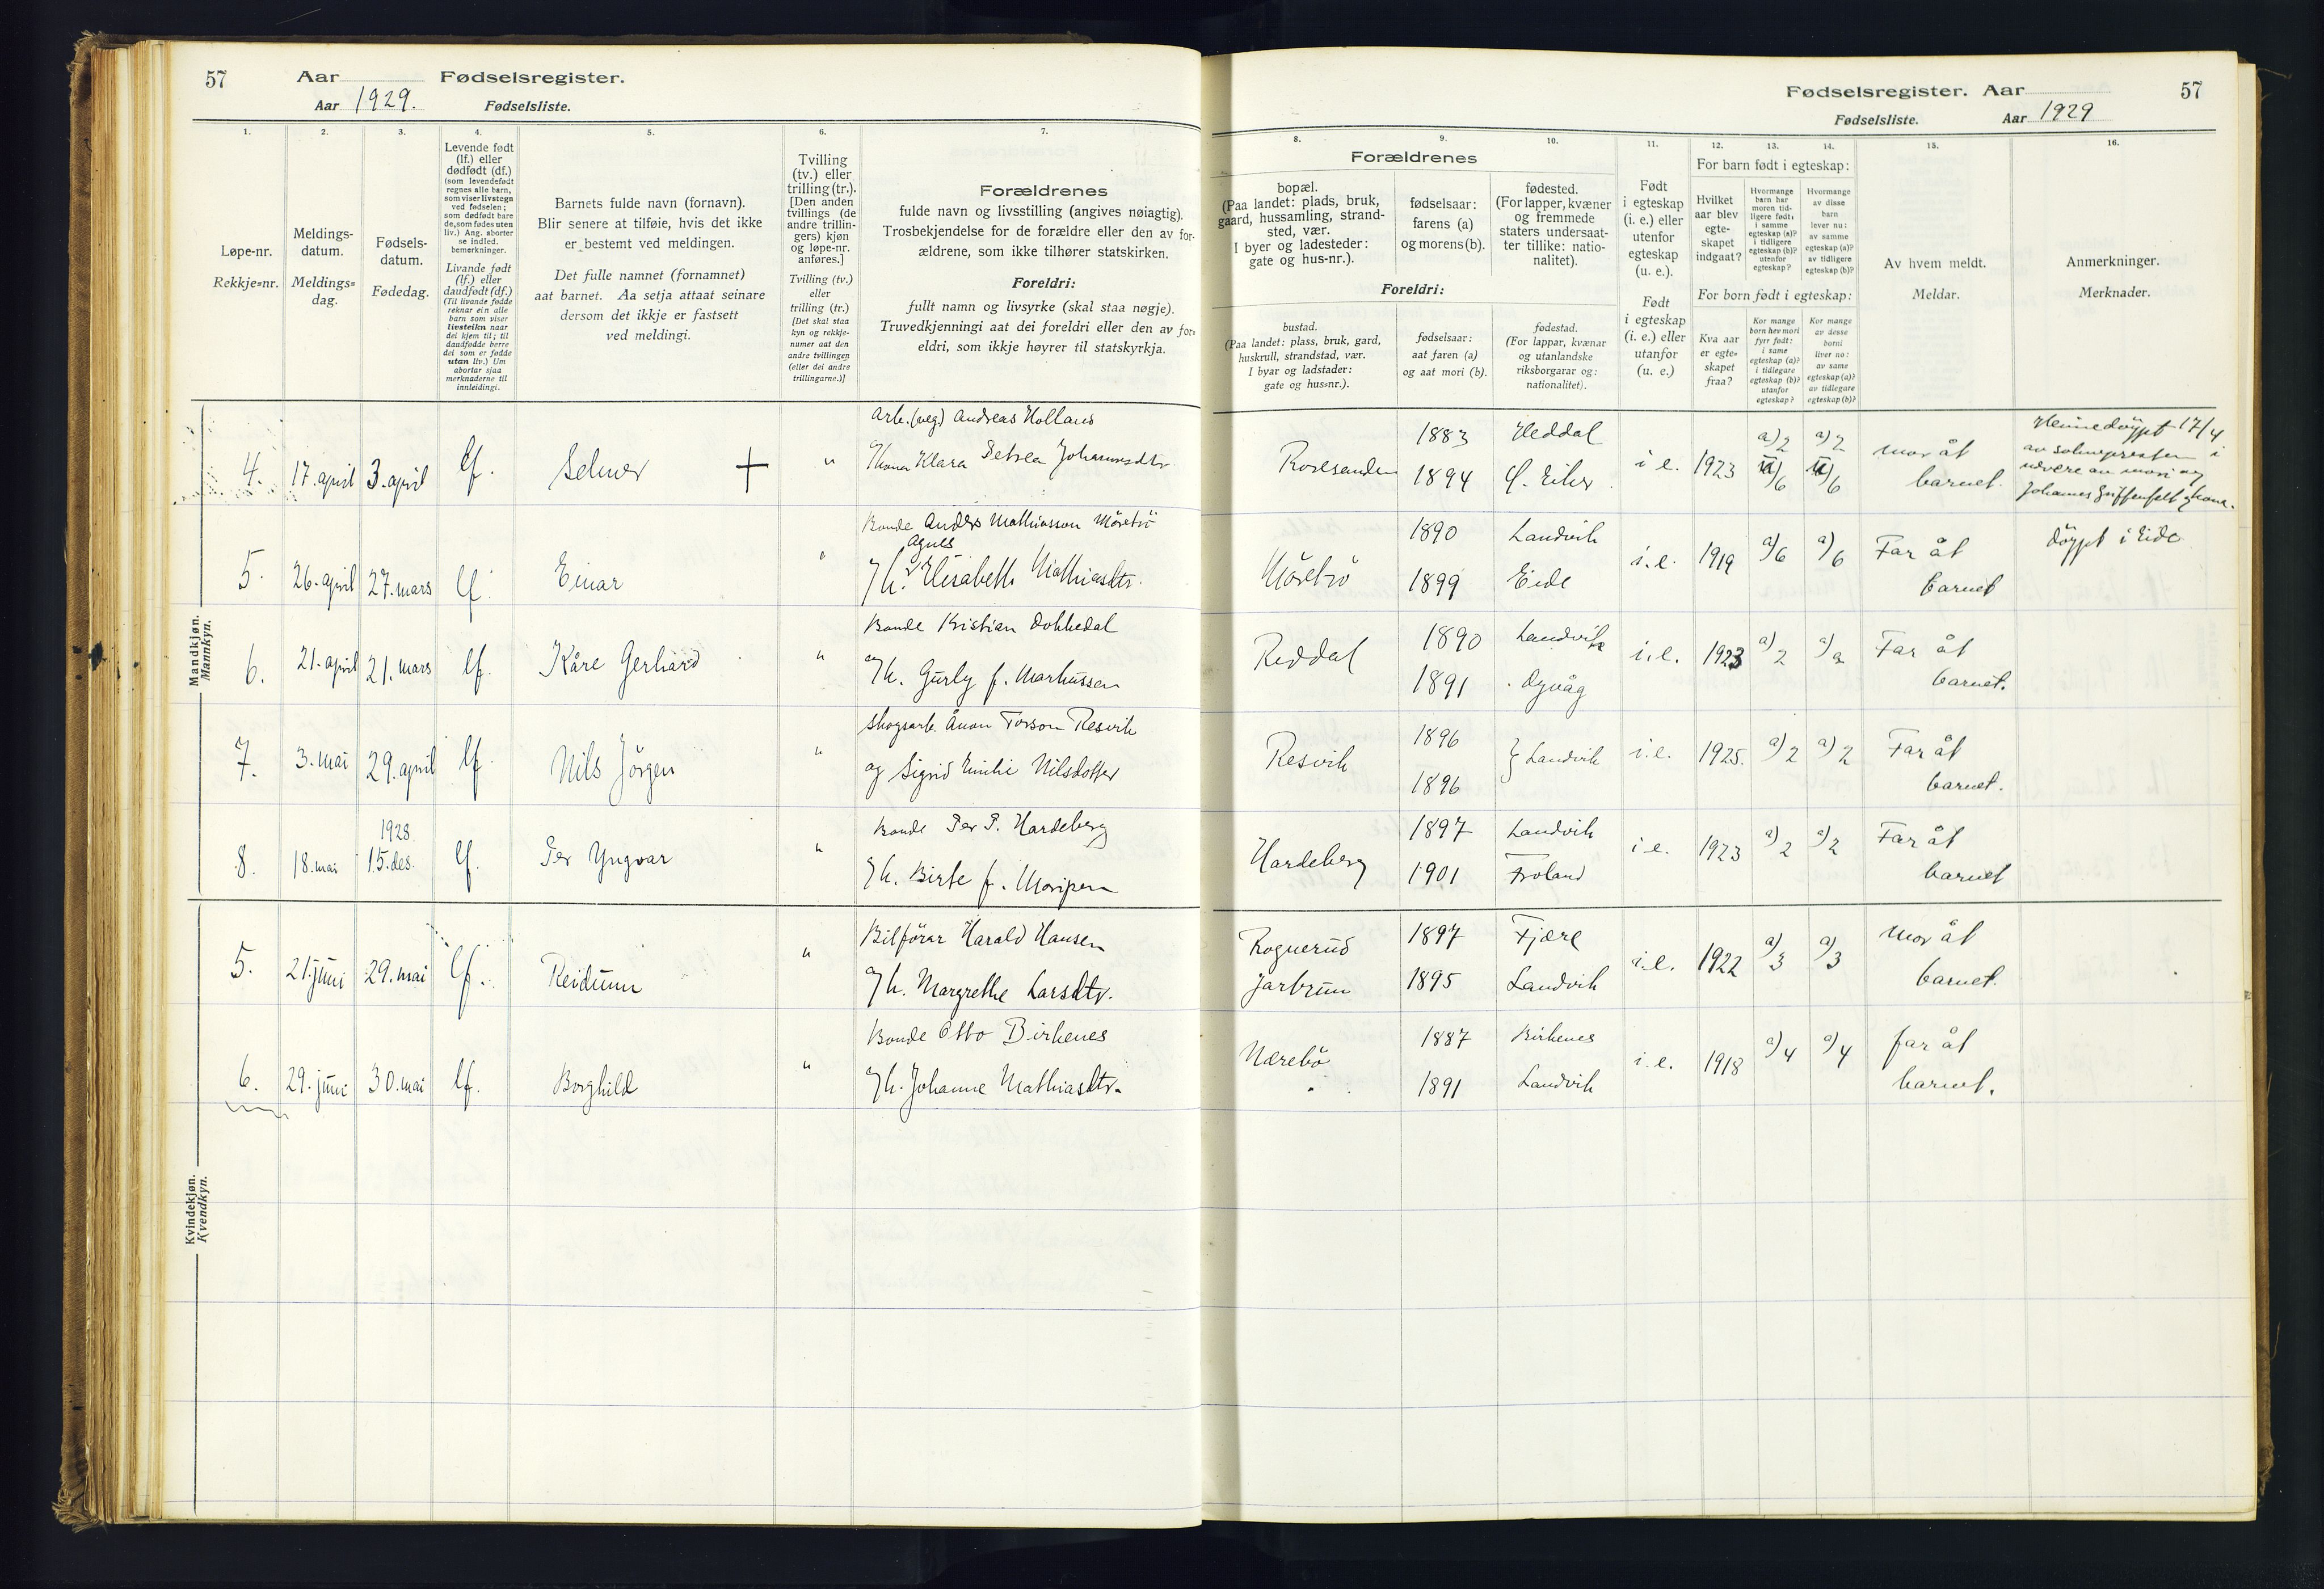 57 Aar Fødselsregister.
Aar 1929. Fødselsliste.
1. 2. 3. 4. 5. 6. 7.
Løpe-nr.
Rekkje-nr.
Meldings-
datum.
Meldings-
dag.
Fødsels-
datum.
Fødedag.
Levende født
(lf.) eller
dødfødt (df.)
(som levendefødt
regnes alle barn,
som viser livstegn
ved fødselen;
som dødfødt bare
de, som fødes uten
liv.) Ang. aborter
se indled.
bemerkninger.
Livande født
(lf.) eller
daudfødt (df.)
(Til livande fødde
reknar ein alle
barn som viser
livsteikn naar
dei kjem til; til
daudfødde berre
dei som er fødde
utan liv.) Um
abortar sjaa
merknaderne til
innleidingi.
Barnets fulde navn (fornavn).
Blir senere at tilføie, hvis det ikke
er bestemt ved meldingen.
Det fulle namnet (fornamnet)
aat barnet. Aa setja attaat seinare
dersom det ikkje er fastsett
ved meldingi.
Tvilling
(tv.) eller
trilling (tr.).
[Den anden
tvillings (de
andre trillin-
gers) kjøn
og løpe-nr.
anføres.]
Tvilling (tv.)
eller
trilling (tr.)
[Det skal staa
kyn og rekkje-
numer aat den
andre tvillingen
(eller dei andre
trillingarne.)]
Forældrenes
fulde navn og livsstilling (angives nøiagtig).
Trosbekjendelse for de forældre eller den av for-
ældrene, som ikke tilhører statskirken.
Foreldri:
fullt namn og livsyrke (skal staa nøgje).
Truvedkjenningi aat dei foreldri eller den av for-
eldri, som ikkje høyrer til statskyrkja.
Mandkjøn.
Mannkyn.
4. 17. april 3. april lf. Selmer + "
Arb. (veg) Andreas Hollans
og kona Klara Petrea Johannesdtr.
5. 26. april 27. mars lf. Einar "
Bonde Anders Mathiasson Möretrö
Agnes
og k. Elisabeth Mathiasdtr.
6. 21. april 21. mars lf. Kåre Gerhard "
Bonde Kristian Dokkedal
og k. Gurly f. Markussen
7. 3. mai 29. april lf. Nils Jörgen "
Skogsarb. Ånon Torson Resvik
og Sigrid Emilie Nilsdotter
8. 18. mai 1928 15. des. lf. Per Yngvar "
Bonde Per P. Hardeberg
og k. Birte f. Moripen
Kvindekjøn.
Kvendkyn.
5. 21. juni 29. mai lf. Reidunn "
Bilförar Harald Hansen
og k. Margrethe Larsdtr.
6. 29. juni 30. mai lf. Borghild "
Bonde Otto Birkenes
og k. Johanne Mathiasdtr.
Fødselsregister. Aar 57
Fødselsliste. Aar 1929
8. 9. 10. 11. 12. 13. 14. 15. 16.
Forældrenes
bopæl.
(Paa landet: plads, bruk,
gaard, hussamling, strand-
sted, vær.
I byer og ladesteder:
gate og hus-nr.).
fødselsaar:
farens (a)
og morens (b).
fødested.
(For lapper, kvæner
og fremmede
staters undersaat-
ter tillike: natio-
nalitet).
Foreldri:
bustad.
(Paa landet: plass, bruk, gard,
huskrull, strandstad, vær.
I byar og ladstader:
gate og hus-nr.).
fødselsaar:
aat faren (a)
og aat mori (b).
fødestad.
(For lappar, kvænar
og utanlandske
riksborgarar og:
nationalitet).
Født
i egteskap
(i. e.) eller
utenfor
egteskap
(u. e.).
Født
i egteskap
(i. e.) eller
utanfor
egteskap
(u. e.)
For barn født i egteskap:
Hvilket
aar blev
egte-
skapet
indgaat?
Hvormange
barn har
moren tid-
ligere født:
i samme
egteskap (a)?
i tidligere
egteskap (b)?
utenfor
egteskap?
Hvormange
av disse
barn
lever nu:
av samme
egteskap (a)?
av tidligere
egteskap (b)?
For born født i egteskap:
Kva aar
er egte-
skapet
fraa?
Kor mange
born hev mori
fyrr født:
i same
egteskap (a)?
i tidlegare
egteskap (b)?
utanfor
egteskap?
Kor mange
av desse
borni
liver no:
av same
egteskap (a)?
av tidlegare
egteskap (b)?
Av hvem meldt.
Meldar.
Anmerkninger.
Merknader.
1883 Heddal
1894 Ö. Eiker
i e. 1923 a) 2 a) 2
6 6
mor åt
barnet.
Heimedöypt 17/4
av soknepresten i
nærvere av mori og
Johannes Griffenfelt og kona.
Möretrö
1890 Landvik
1899 Eide
i. e. 1919 a) 6 a) 6
Far åt
barnet
döypt i Eide
Reddal
1890 Landvik
1891 Dypvåg
i. e. 1923 a) 2 a) 2
Far åt
barnet.
Resvik
1896
1896
} Landvik
i. e. 1925. a) 2 a) 2
Far åt
barnet.
Hardeberg
1897 Landvik
1901 Froland
i e. 1923 a) 2 a) 2
Far åt
barnet
Rognerud
Jarbrun
1897 Fjære
1895 Landvik
i. e. 1922 a) 3 a) 3
Mor åt
barnet.
Nærebö
1887 Birkenes
1891 Landvik
i. e. 1918 a) 4 a) 4
far åt
barnet.